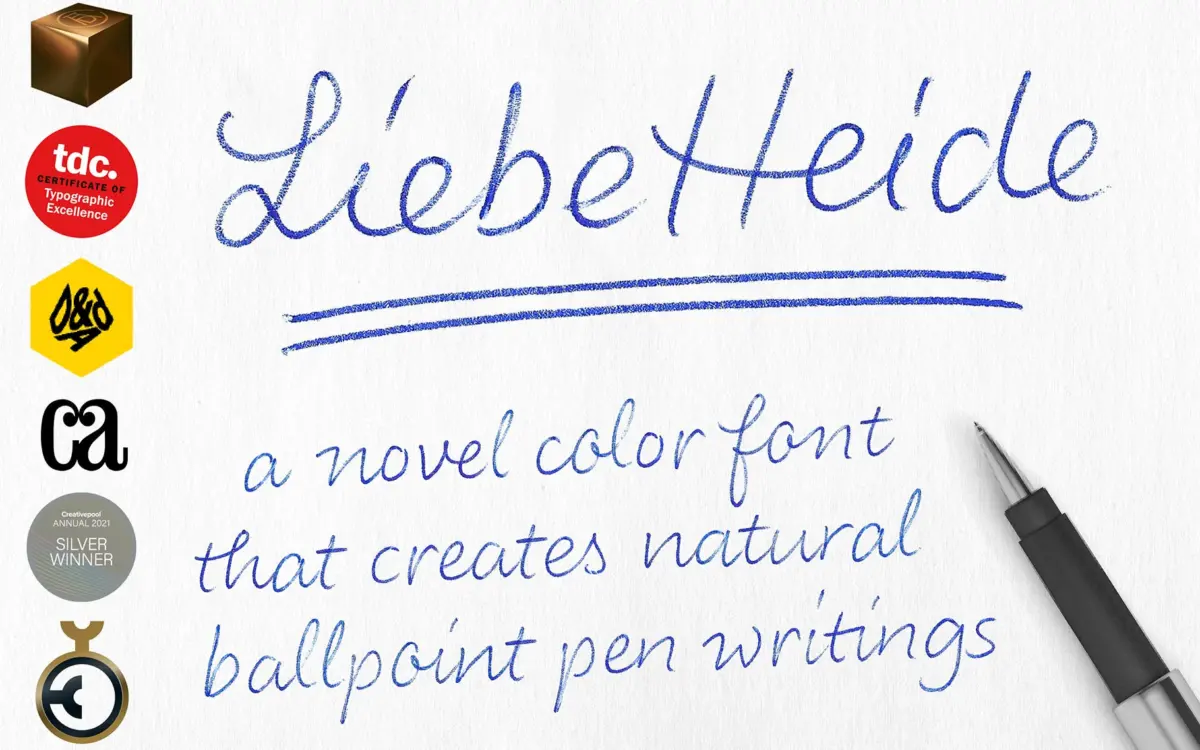 tdc.
CERTIFICATE OF
Typographic
Excellence
D&AD
ca
Creativepool
ANNUAL 2021
SILVER
WINNER
LiebeHeide
a novel color font
that creates natural
ballpoint pen writings